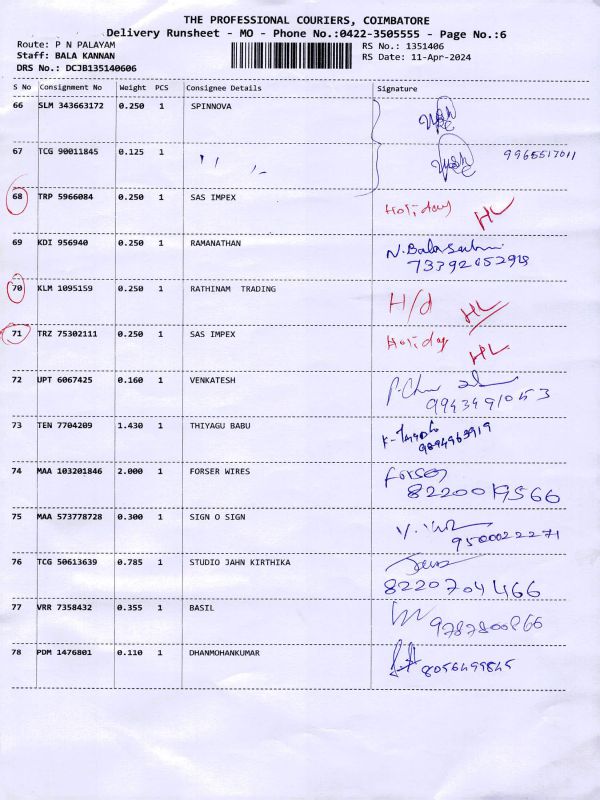 THE PROFESSIONAL COURIERS, COIMBATORE
Delivery Runsheet - MO - Phone No.:0422-3505555 - Page No.:6
Route: P N PALAYAM
RS No.: 1351406
Staff: BALA KANNAN
RS Date: 11-Apr-2024
DRS No.: DCJB135140606
S No Consignment No Weight PCS Consignee Details Signature
66 SLM 343663172 0.250 1 SPINNOVA
67 TCG 90011845 0.125 1 9965517011
68 TRP 5966084 0.250 1 SAS IMPEX Holiday HL
69 KDI 956940 0.250 1 RAMANATHAN
70 KLM 1095159 0.250 1 RATHINAM TRADING H/d HL
71 TRZ 75302111 0.250 1 SAS IMPEX Holiday HL
72 UPT 6067425 0.160 1 VENKATESH
9943491053
73 TEN 7704209 1.430 1 THIYAGU BABU
74 MAA 103201846 2.000 1 FORSER WIRES Forser
8220019566
75 MAA 573778728 0.300 1 SIGN O SIGN
9500022271
76 TCG 50613639 0.785 1 STUDIO JAHN KIRTHIKA
8220704466
77 VRR 7358432 0.355 1 BASIL
78 PDM 1476801 0.110 1 DHANMOHANKUMAR 8056499845